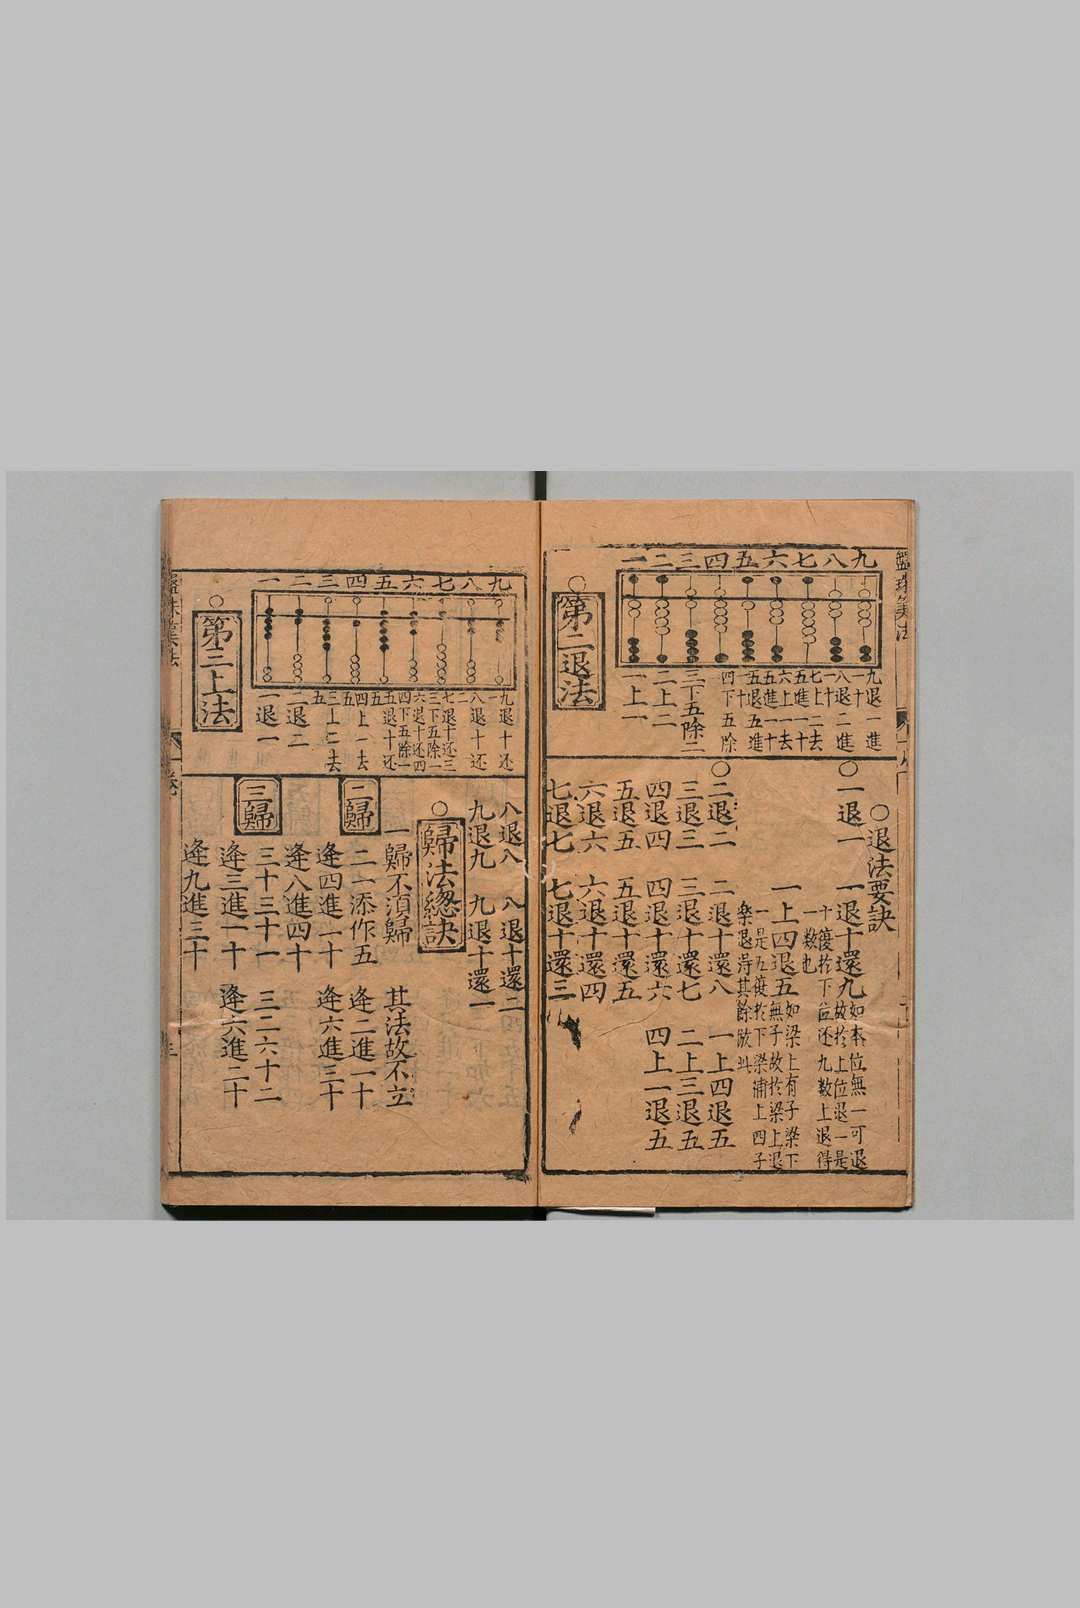 盤珠算法
一二三四五六七八九
九退一進一十
八退二進一十
七上二去五進一十
六上一去五進一十
五退五進一十
四下五除
三下五除二
二上二
一上一
○第二退法
○退法要訣
○一退一 一退十還九 如本位無一可退故於上位退一是十復於下位还九數上退得一數也
一上四退五 如梁上有子梁下無子故於梁上退一是五復於下梁浦上四子
○二退二 二退十還八 一上四退五
三退三 三退十還七 二上三退五
四退四 四退十還六 四上一退五
五退五 五退十還五
六退六 六退十還四
七退七 七退十還三
一二三四五六七八九
九退十还一
八退十还二
七退十还三
三下五除一
六退十还四
四下五除一
五退十还五
四上一去五
三上二去五
二退二
一退一
○第三上法
八退八 八退十還二
九退九 九退十還一
○歸法總訣
一歸不湏歸 其法故不立
二歸
二一添作五 逢二進一十
逢四進一十 逢六進三十
逢八進四十
三歸
三十三十一 三二六十二
逢三進一十 逢六進二十
逢九進三十
盤珠算法
一卷